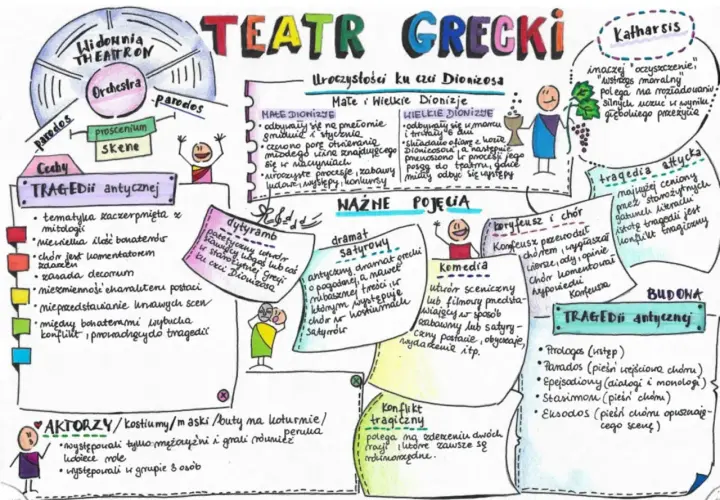 TEATR GRECKI
Widownia
THEATRON
Orchestra
parodos
parodos
proscenium
skene
Uroczystości ku czci Dionizosa
Małe i Wielkie Dionizje
MAŁE DIONIZJE
• odbywały się na przełomie
grudnia i stycznia
• czczono porę otwierania
młodego wina znajdującego
się w naczyniach
• uroczyste procesje, zabawy
ludowe, występy, konkursy
WIELKIE DIONIZJE
• odbywały się w marcu
i trwały 6 dni
• składano ofiarę z kozła
Dionizosowi, a następnie
przenoszono w procesji jego
posąg do teatru, gdzie
miały odbyć się występy
Katharsis
inaczej "oczyszczenie",
wstrząs moralny
polega na rozładowaniu
silnych uczuć w wyniku
głębokiego przeżycia
Cechy
TRAGEDii antycznej
• tematyka zaczerpnięta z
mitologii
• niewielka ilość bohaterów
• chór jest komentatorem
zdarzeń
• zasada decorum
• niezmienność charakteru postaci
• nieprzedstawianie krwawych scen
• między bohaterami wybucha
konflikt, prowadzący do tragedii
WAŻNE POJĘCIA
dytyramb
patetyczny utwór
sławiący kogoś lub coś
w starożytnej Grecji
ku czci Dionizosa
dramat
satyrowy
antyczny dramat grecki
o pogodnej, a nawet
rubasznej treści, w
którym występuje
chór w kostiumach
satyrów
komedia
utwór sceniczny
lub filmowy przedsta-
wiający w sposób
zabawny lub satyry-
czny postacie, obyczaje,
wydarzenia itp.
koryfeusz i chór
Koryfeusz przewodził
chórem, wygłaszał
wiersze, ody, opinie
Chór komentował
wypowiedzi
Koryfeusza
tragedia attycka
najwyżej ceniony
przez starożytnych
gatunek literacki
istotą tragedii jest
konflikt tragiczny
konflikt
tragiczny
polega na zderzeniu dwóch
racji, które zawsze są
równorzędne.
BUDOWA
TRAGEDii antycznej
• Prologos (wstęp)
• Parados (pieśń wejściowa chóru)
• Epejsodiony (dialogi i monologi)
• Stasimon (pieśń chóru)
• Eksodos (pieśń chóru opuszczają-
cego scenę)
AKTORZY /kostiumy/maski /buty na koturnie/
peruka
• występowali tylko mężczyźni i grali również
kobiece role
• występowali w grupie 3 osób